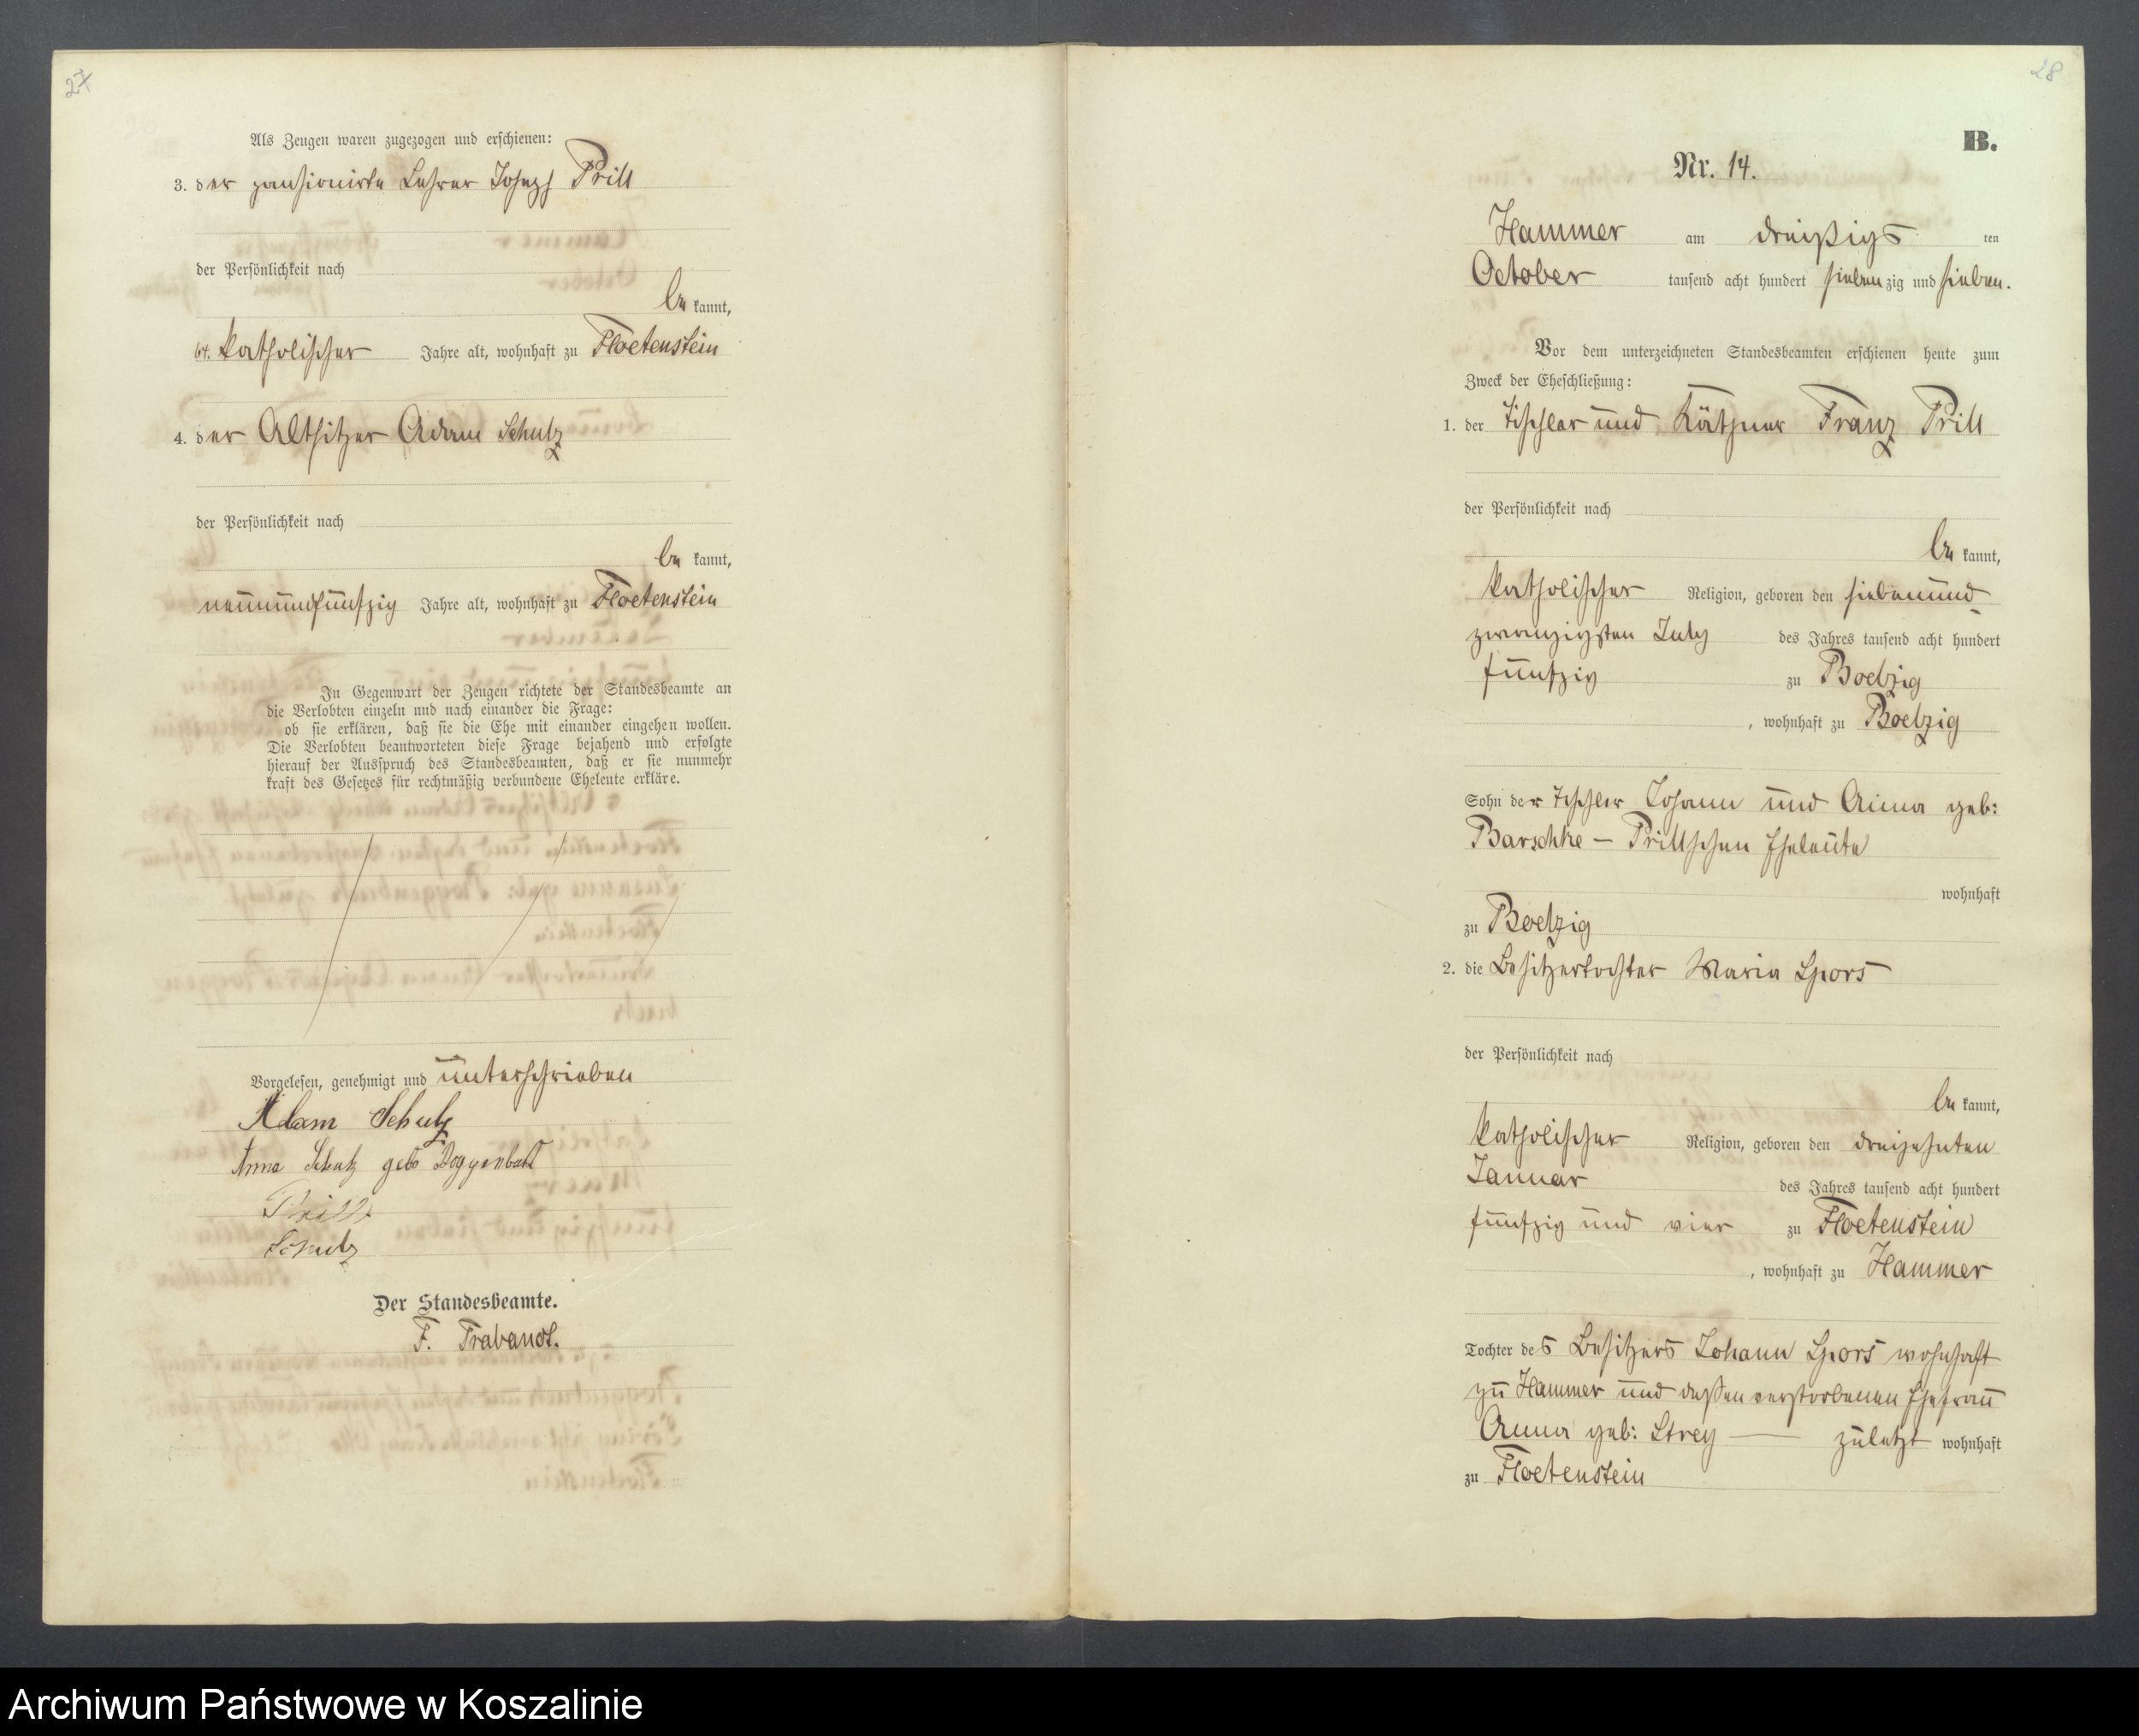 27
Als Zeugen waren zugezogen und erschienen:
3. der pensionirte Lehrer Joseph Prill
der Persönlichkeit nach
be kannt,
64. katholischer Jahre alt, wohnhaft zu Floetenstein
4. der Altsitzer Adam Schulz
der Persönlichkeit nach
be kannt,
neunundfünfzig Jahre alt, wohnhaft zu Floetenstein
In Gegenwart der Zeugen richtete der Standesbeamte an
die Verlobten einzeln und nach einander die Frage:
ob sie erklären, daß sie die Ehe mit einander eingehen wollen.
Die Verlobten beantworteten diese Frage bejahend und erfolgte
hierauf der Ausspruch des Standesbeamten, daß er sie nunmehr
kraft des Gesetzes für rechtmäßig verbundene Eheleute erkläre.
Vorgelesen, genehmigt und unterschrieben
Adam Schulz
Anna Schulz geb Roggenbuck
Prill
Schulz
Der Standesbeamte.
F. Trabandt.
28
B.
Nr. 14.
Hammer am dreißigs ten
October tausend acht hundert sieben zig und sieben.
Vor dem unterzeichneten Standesbeamten erschienen heute zum
Zweck der Eheschließung:
1. der Tischler und Käthner Franz Prill
der Persönlichkeit nach
be kannt,
katholischer Religion, geboren den siebenund-
zwanzigsten July des Jahres tausend acht hundert
fünfzig zu Boelzig
, wohnhaft zu Boelzig
Sohn der Tischler Johann und Anna geb:
Barschke – Prillschen Eheleute
wohnhaft
zu Boelzig
2. die Besitzertochter Maria Spors
der Persönlichkeit nach
be kannt,
katholischer Religion, geboren den dreizehnten
Januar des Jahres tausend acht hundert
fünfzig und vier zu Floetenstein
, wohnhaft zu Hammer
Tochter des Besitzers Johann Spors wohnhaft
zu Hammer und deßen verstorbenen Ehefrau
Anna geb: Strey — zuletzt wohnhaft
zu Floetenstein
Archiwum Państwowe w Koszalinie